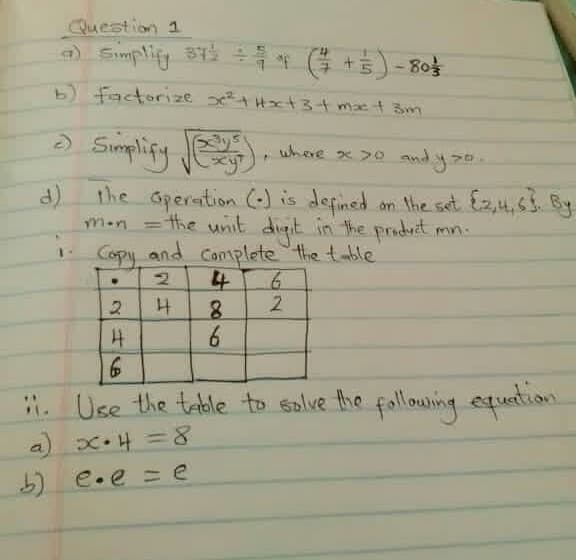 Question 1
a) Simplify 37½ ÷ 5/9 of (4/7 + 1/5) - 80⅓
b) factorize x² + 4x + 3 + mx + 3m
c) Simplify √(x³y⁵/xy⁷), where x > 0 and y > 0.
d) The operation (•) is defined on the set {2,4,6}. By
m•n = the unit digit in the product mn.
i. Copy and complete the table
• 2 4 6
2 4 8 2
4 6
6
ii. Use the table to solve the following equation
a) x•4 = 8
b) e•e = e